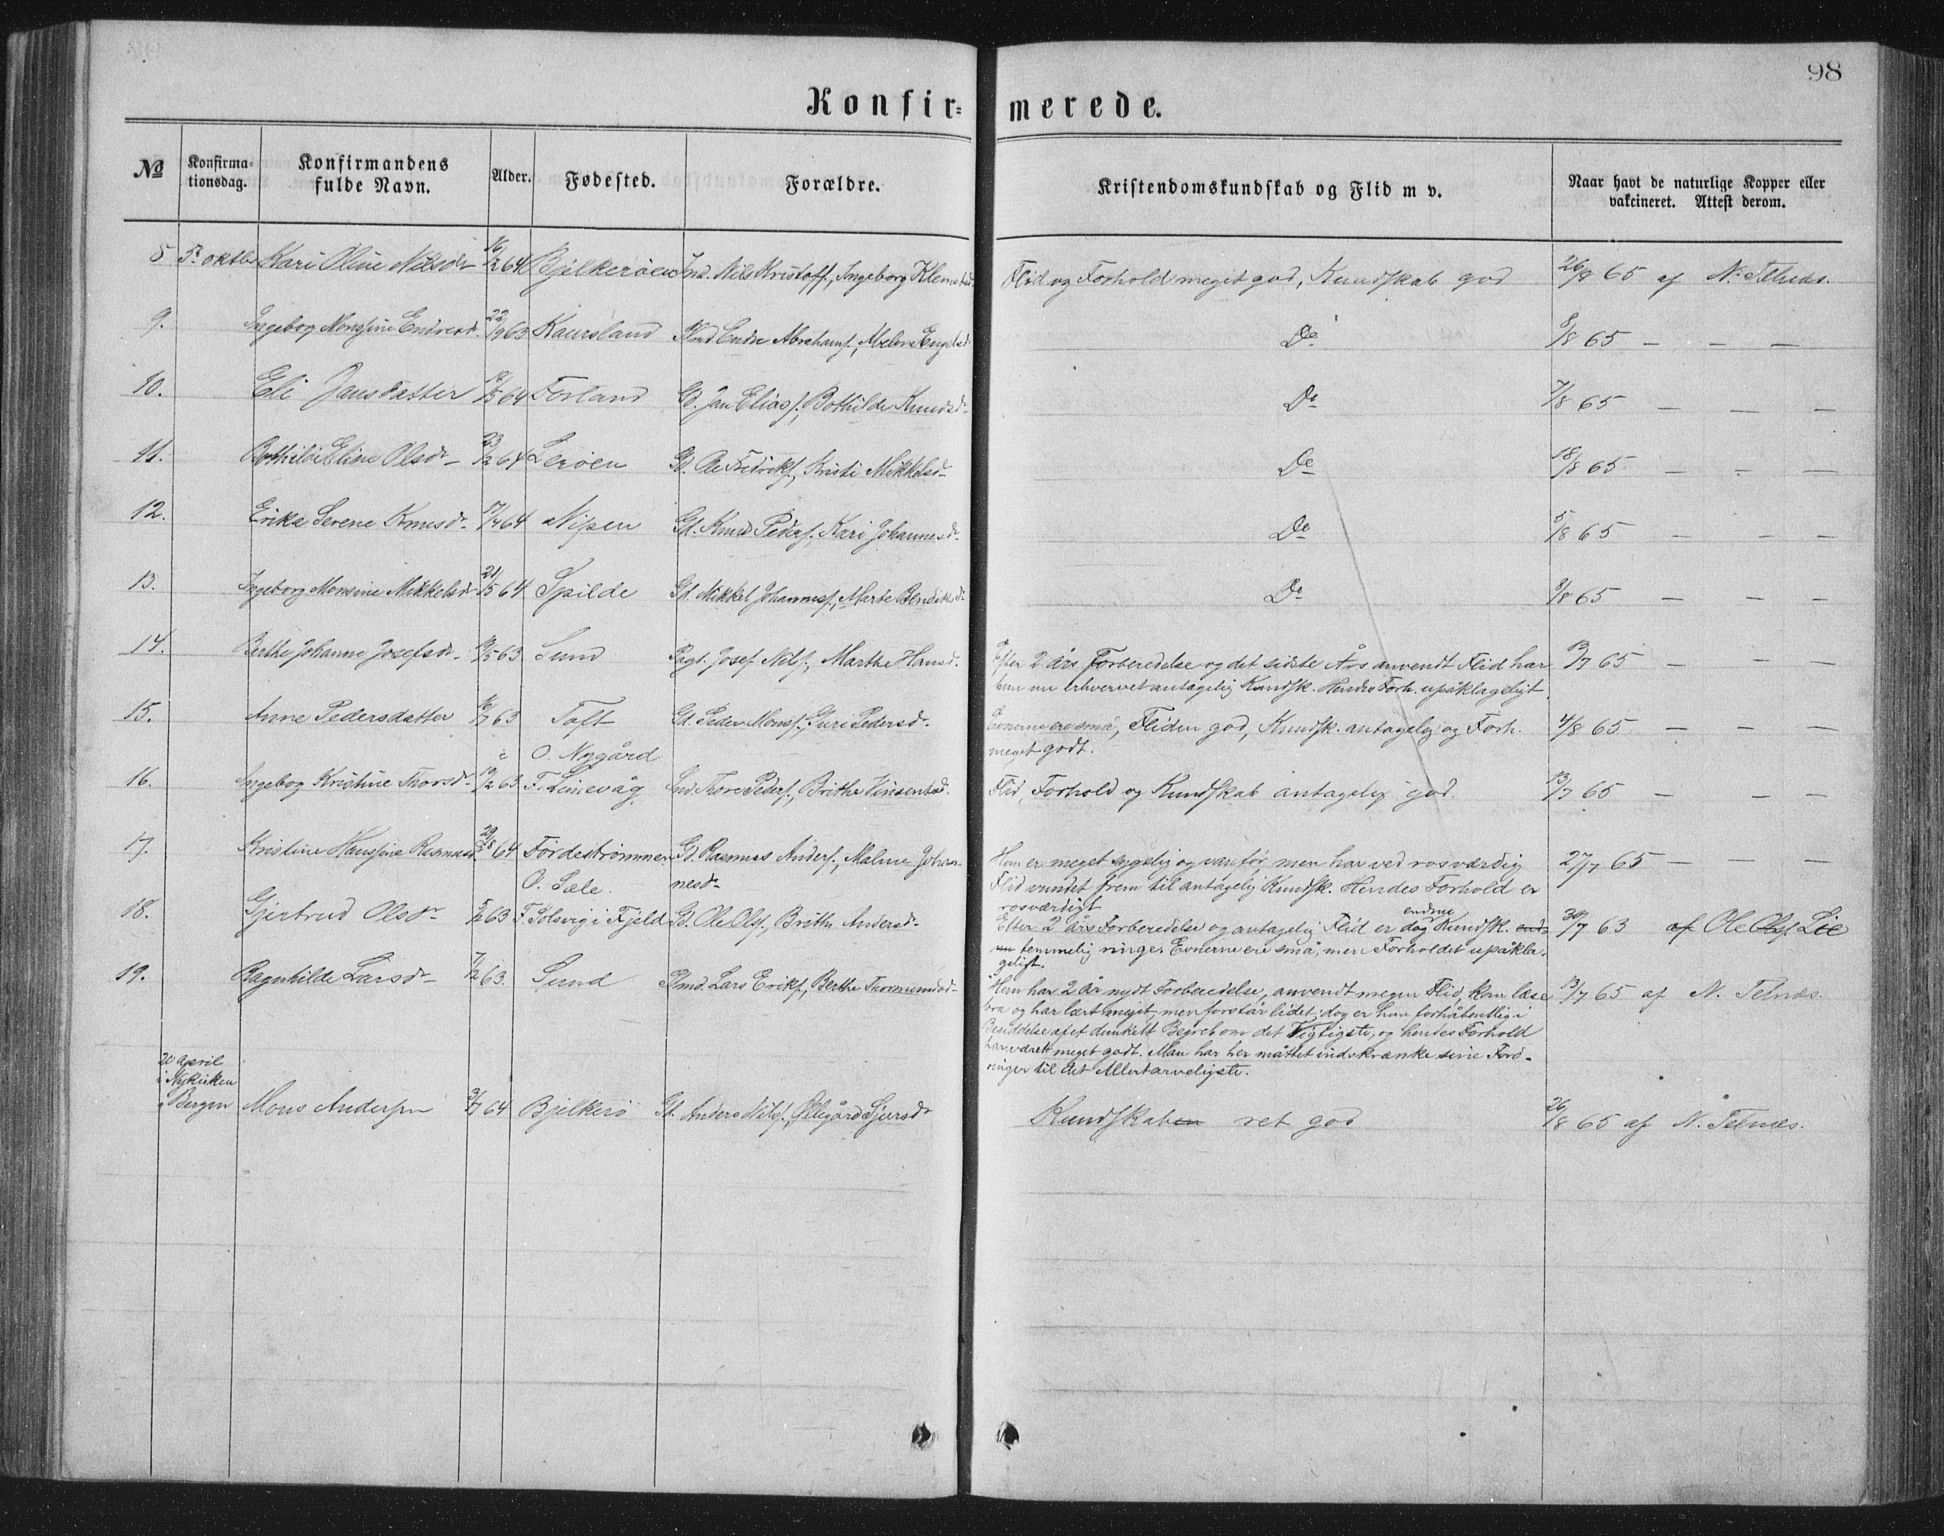 98
Konfir- merede.
№ Konfirma-tionsdag. Konfirmandens fulde Navn. Alder. Fødested. Forældre. Kristendomskundskab og Flid m v. Naar havt de naturlige Kopper eller vakcineret. Attest derom.
8 5te oktbr Kari Oline Nilsdr 16/2 64 Bjelkerøen Ind. Nils Kristoff., Ingeborg Klemetsd. Flid og Forhold meget god, Kundskab god 26/8 65 af N. Telnæs.
9. Ingeborg Monsine Endresd. 22/9 63 Kaursland Pmd Endre Abrahams., Engelsd. Do 8/8 65 — — —
10. Eli Jansdatter /5 64 Forland Gd. Jan Elias f., Bothilde Knudsd. Do 7/8 65 — — —
11. Bothilde Eline Olsdr 23/2 64 Lerøen Gd. Ole Fredrikf., Kristi Mikkelsd. Do 18/8 65 — — —
12. Erika Serene Knudsd. 7/4 64 Nipen Gd. Knud Pedersf., Kari Johannesd. Do 5/8 65 — — —
13. Ingeborg Monsine Mikkelsd 21/5 64 Spilde Gd. Mikkel Johannesf., Marte Do 9/8 65 — — —
14. Berthe Johanne Josefsd. /5 63 Sund Josef Nilsf., Marthe Hansd. Efter 2 års Forberedelse og det sidste Års anvendt Flid har
hun nu erhvervet antagelig Kundsk. Hendes Forh. upåklageligt. /7 65 — — —
15. Anne Pedersdatter 6/7 63 Toft Gd. Peder Monsf., Guri Pedersd. Evnerne ere små, Fliden god, Kundsk. antagelig og Forh.
meget godt. 4/8 65 — — —
16. Ingeborg Kristine Thorsd. 19/2 63 O. Nygård
F. Linevåg Ind. Thore Pedersf., Brithe Vinsentsd. Flid, Forhold og Kundskab antagelig god. 13/7 65 — — —
17. Kristine Hansine Rasmusd. 29/8 64 Førdestrømmen Gd. Rasmus Andersf., Malene Johan-
nesdr Hun er meget sygelig og vanfør, men har ved rosværdig
Flid vundet frem til antagelig Kundsk. Hendes Forhold er
rosværdigt 27/7 65 — — —
18. Gjertrud Olsdr 5/2 63 O. Sæle.
F. Solsvig i Fjeld Gd. Ole Olsf., Brithe Andersd. Efter 2 års Forberedelse og antagelig Flid er dog endnu Kundsk.
temmelig ringe. Evnerne ere små, men Forholdet upåkla-
geligt. 30/7 63 af Ole Olsf. Lie
19. Ragnhilde Larsdr 7/12 63. Sund Pmd. Lars Erikf., Berthe Thormundsd. Hun har 2 år nydt Forberedelse, anvendt megen Flid, kan læse
bra og har lært meget, men forstår lidet; dog er hun forhåbentlig i
Besiddelse af et dunkelt Begreb om det Vigtigste, og hendes Forhold
har været meget godt. Man har her måttet indskrænke sine Ford-
ringer til det Allertarveligste. 13/7 65 af N. Telnæs.
20 april
i Nykirken
i Bergen Mons Andersen 3/7 64 Bjelkerø Gd. Anders Nilsf., Ollegård Sjursdr Kundskaben ret god 26/8 65 af N. Telnæs.